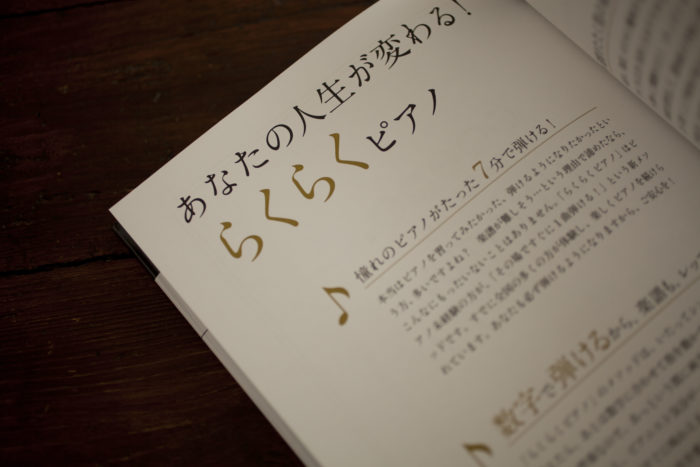 あなたの人生が変わる!
らくらくピアノ
♪ 憧れのピアノがたった7分で弾ける!
本当はピアノを習ってみたかった、弾けるようになりたかったとい
う方、多いですよね? 楽譜が難しそう…という理由で諦めたなら、
こんなにもったいないことはありません。「らくらくピアノ」はピ
アノ未経験の方が、「その場ですぐに1曲弾ける!」という新メソ
ッドです。すでに全国の多くの方が体験し、楽しくピアノを続けら
れています。あなたも必ず弾けるようになりますから、ご安心を!
♪ 数字で弾けるから、楽譜も、レッ
「らくらくピアノ」のメソッドは、